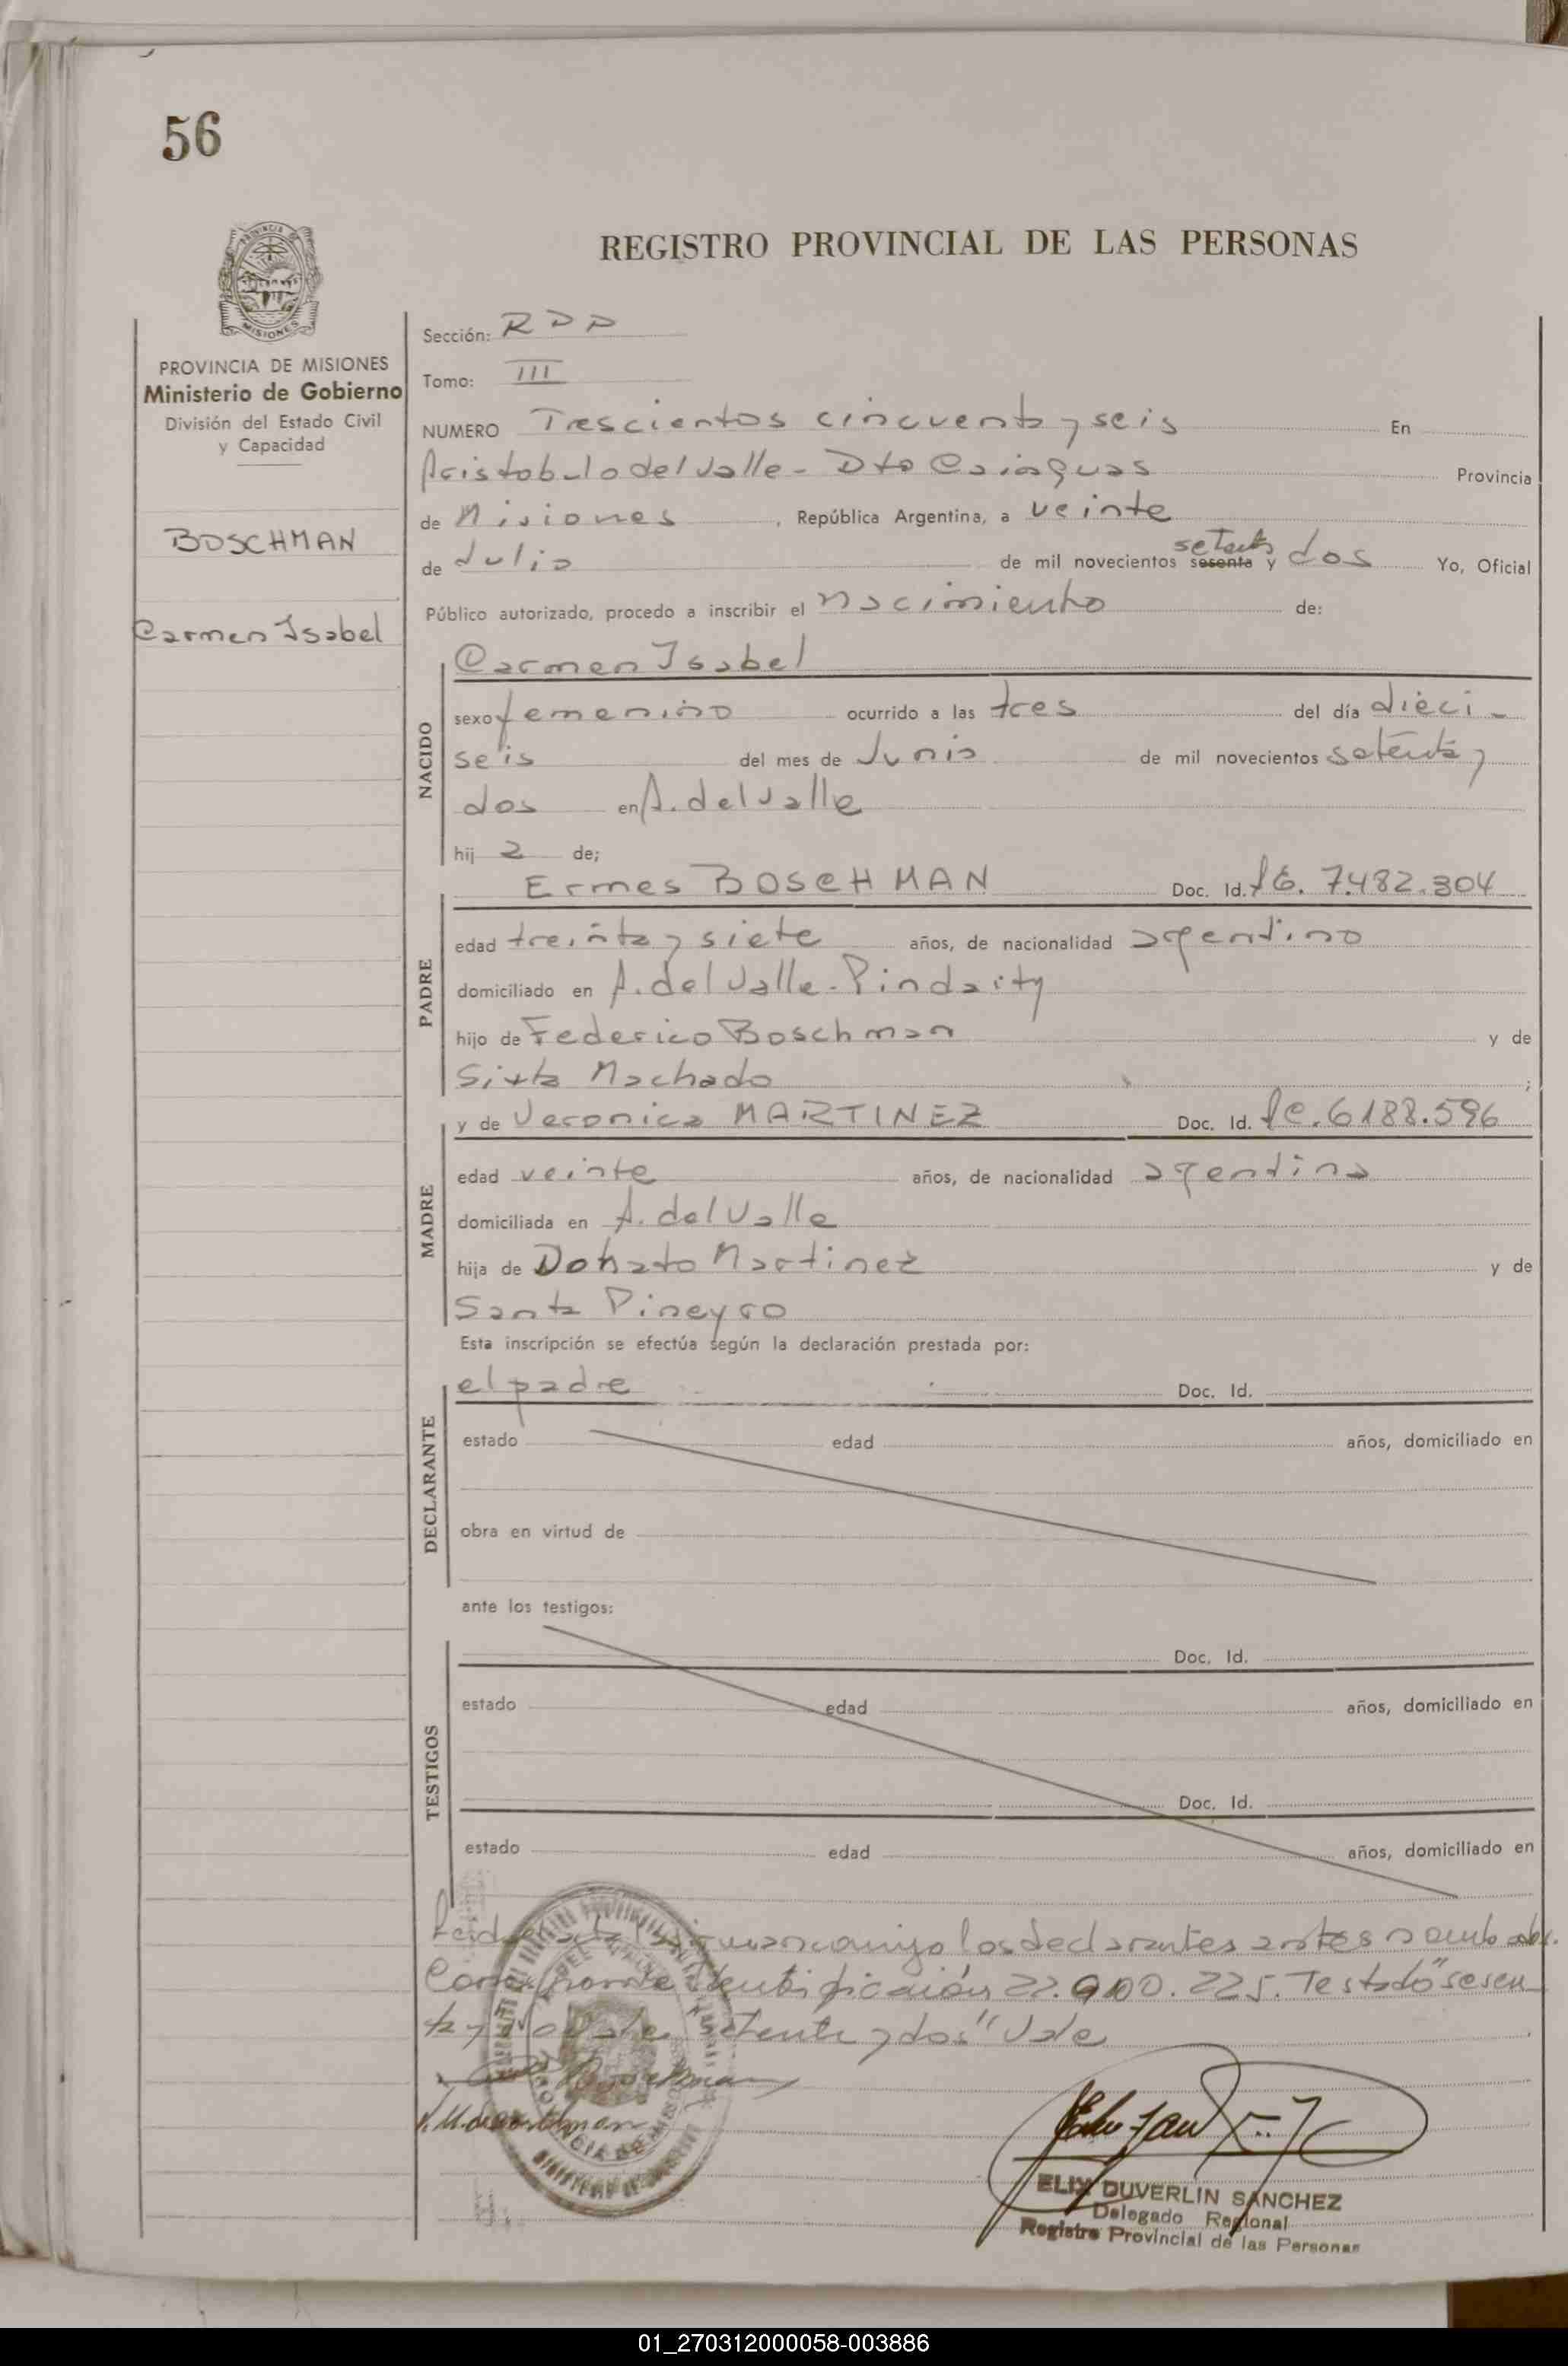 56
REGISTRO PROVINCIAL DE LAS PERSONAS
PROVINCIA DE MISIONES
Ministerio de Gobierno
División del Estado Civil
y Capacidad
BOSCHMAN
Carmen Isabel
Sección: RDP
Tomo: III
NUMERO Trescientos cincuenta y seis En
Aristobulo del Valle - Dto Cainguas Provincia
de Misiones, República Argentina, a veinte
de Julio de mil novecientos sesenta setenta y dos Yo, Oficial
Público autorizado, procedo a inscribir el nacimiento de:
NACIDO
Carmen Isabel
sexo femenino ocurrido a las tres del día dieci-
seis del mes de Junio de mil novecientos setenta y
dos en A. del Valle
hij a de;
PADRE
Ermes BOSCHMAN Doc. Id. 7.482.304
edad treinta y siete años, de nacionalidad argentino
domiciliado en A. del Valle - Pindaity
hijo de Federico Boschman y de
Sixta Machado ;
MADRE
y de Veronica MARTINEZ Doc. Id. lc. 6188.596
edad veinte años, de nacionalidad argentina
domiciliada en A. del Valle
hija de Donato Martinez y de
Santa Pineyro
Esta inscripción se efectúa según la declaración prestada por:
DECLARANTE
el padre Doc. Id.
estado edad años, domiciliado en
obra en virtud de
ante los testigos:
TESTIGOS
Doc. Id.
estado edad años, domiciliado en
Doc. Id.
estado edad años, domiciliado en
Leida acta firman conmigo los declarantes antes nombrados.
Corresponde Identificación 22.900.225. Testado "sesen
ta y setenta y dos" Vale
ELIX DUVERLIN SANCHEZ
Delegado Regional
Registro Provincial de las Personas
01_270312000058-003886